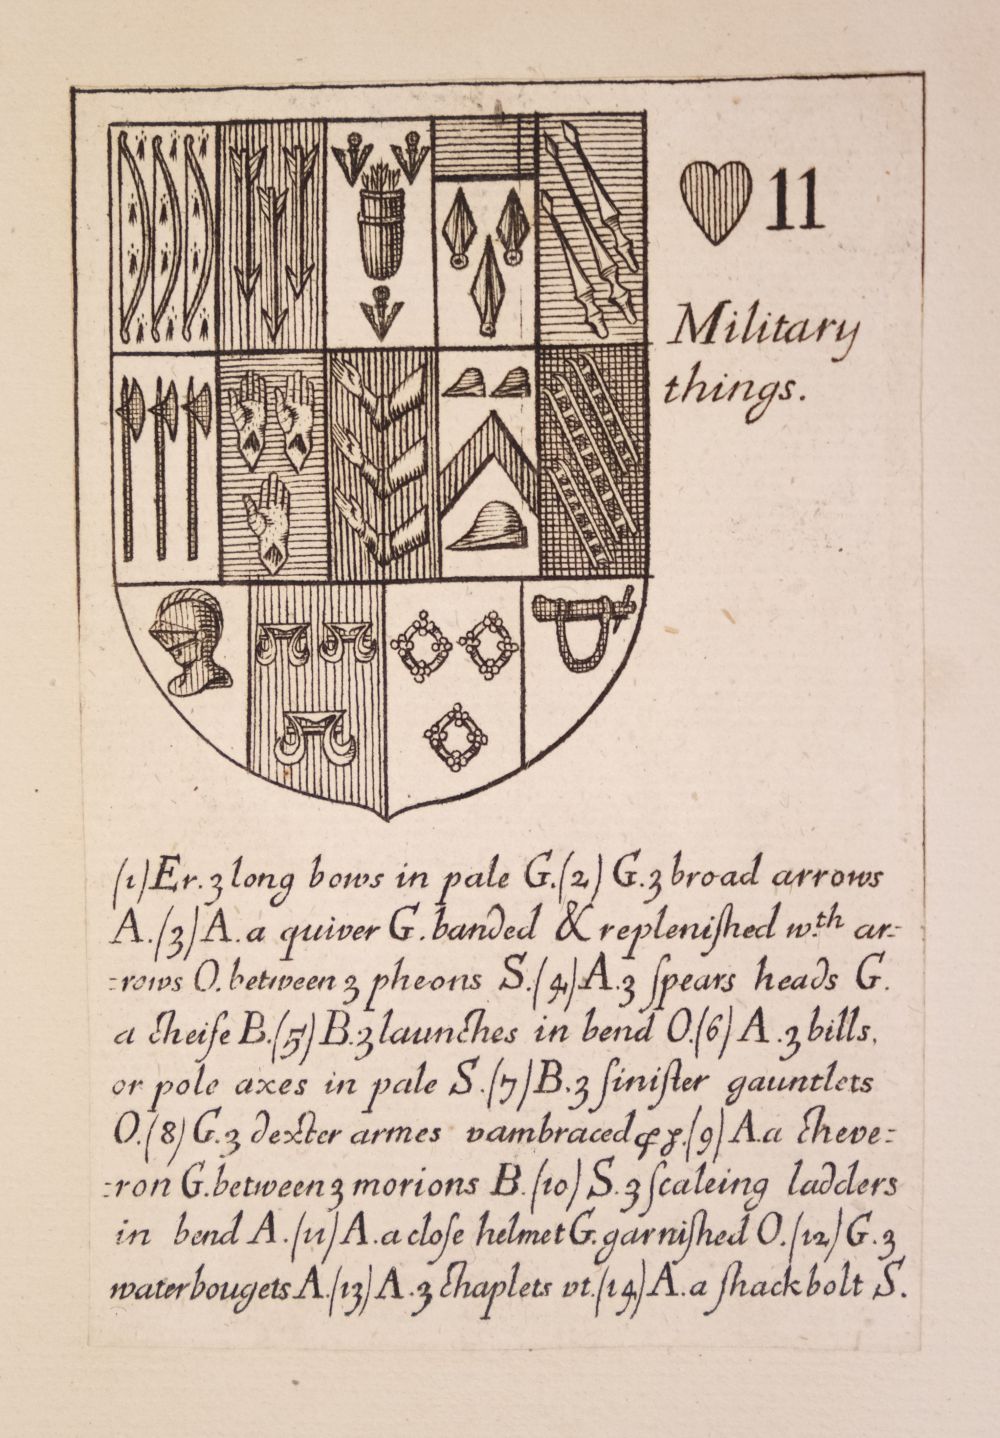 11
Military
things.
(1) Er. 3 long bows in pale G. (2) G. 3 broad arrows
A. (3) A. a quiver G. banded & repleniſhed w.th ar-
-rows O. between 3 pheons S. (4) A. 3 ſpears heads G.
a cheife B. (5) B. 3 launches in bend O. (6) A. 3 bills,
or pole axes in pale S. (7) B. 3 ſiniſter gauntlets
O. (8) G. 3 dexter armes vambraced pp. (9) A. a cheve-
-ron G. between 3 morions B. (10) S. 3 ſcaleing ladders
in bend A. (11) A. a cloſe helmet G. garniſhed O. (12) G. 3
waterbougets A. (13) A. 3 chaplets vt. (14) A. a ſhackbolt S.